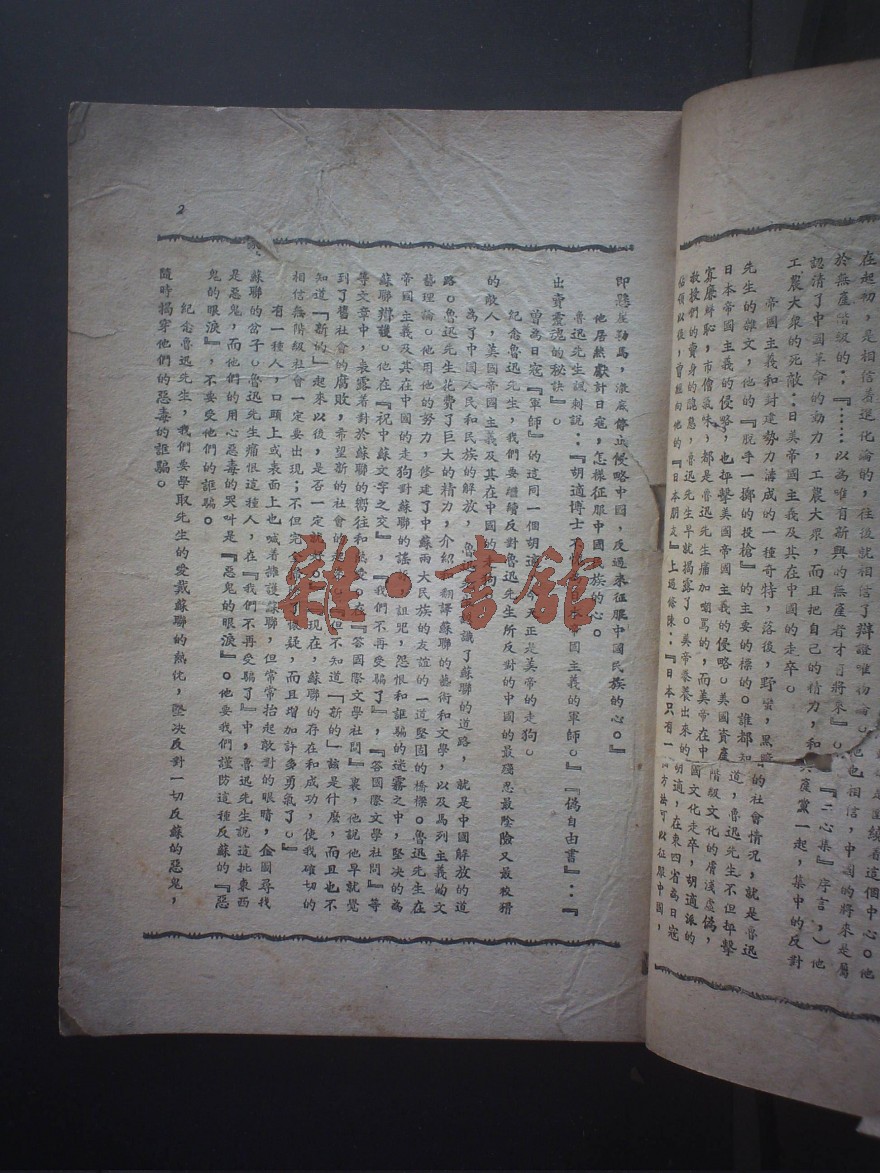 是圍繞着這個中心。他
在起初,是相信着進化論的,往後就相信了辯證唯物論。他也相信,中國的將來是屬
於無產階級的:『……以為唯有新興的無產者才有將來』。『二心集』序言,)他
認清了中國革命的動力,工農大眾,而且把自己的精力,和共產黨一起,集中的反對
工農大眾的死敵:日美帝國主義及其在中國的走卒。
帝國主義和封建勢力溝成的一種奇特,落後,野蠻,黑暗的社會情況,就是魯迅
先生的雜文,他的『脫手一擲的投槍』的主要的標的。誰都知道,魯迅先生不但抨擊
日本帝國主義的侵略,也抨擊美國帝國主義的侵略。美國資產階級文化的膚淺虛偽,
寡廉鮮恥,市儈氣味,都是魯迅先生痛加嘲罵的,而美帝在中國文化走卒,胡適派的
教授們的賣身的醜態,魯迅先生早就揭露了。美帝豢養出來的胡適,在東四省為日寇
佔領以後,曾經向他的『日本朋友』上過條陳:『日本只有一個方法可以征服中國,
即懸崖勒馬,澈底停止侵略中國,反過來征服中國民族的心。』
他居然獻計日寇,怎樣征服中國民族的心。
魯迅先生諷刺說:『胡適博士不愧為日本帝國主義的軍師。』『偽自由書』:『
出賣靈魂的秘訣』。
曾為日寇『軍師』的這同一個胡適,今天正是美帝的走狗。
紀念魯迅先生,我們要繼續反對魯迅先生所反對的中國的最殘忍最陰險又最狡猾
的敵人,美國帝國主義及其在中國的走狗。
為了中國人民和民族的解放,魯迅先生認識了蘇聯的道路,就是中國解放的道
路。魯迅先生花費了巨大的精力,介紹和翻譯蘇聯的藝術和文學,以及馬列主義的文
藝理論。他用他的努力,修建了中蘇兩大民族的友誼的一道堅固的橋樑。魯迅先生在
帝國主義及其在中國的走狗對蘇聯的謠言詛咒,怨恨和誣騙的迷霧之中,堅決的為
蘇聯辯護。他在『祝中蘇文字之交』,『我們不再受騙了』,『答國際文學社問』等
等文章中,表露着對於蘇聯的嚮往和熱愛。在『答國際文學社問』裏,他說他早就覺
到了舊社會的腐敗,希望新的社會的起來,但不知道「新的」該是什麼,而且也不
知道「新的」起來以後,是否一定就好。現在,蘇聯的存在和成功,使我確切的
相信無階級社會一定要出現;不但完全掃除懷疑,而且增加許多勇氣了。』
有一種人,口頭上或表面上也喊着擁護蘇聯,但常常抬起敵對的眼睛,企圖尋找
蘇聯的岔子。魯迅先生痛恨這種人,在『我們不再受騙了』中,魯迅先生說這批東西
是惡鬼,而他們的用心惡毒的哭叫是『惡鬼的眼淚』。他要我們謹防這種反蘇的『惡
鬼的眼淚』,不要受他們的誆騙。
紀念魯迅先生,我們要學取先生的愛戴蘇聯的熱忱,堅決反對一切反蘇的惡鬼,
隨時揭穿他們的惡毒的誆騙。
2
雜·書館